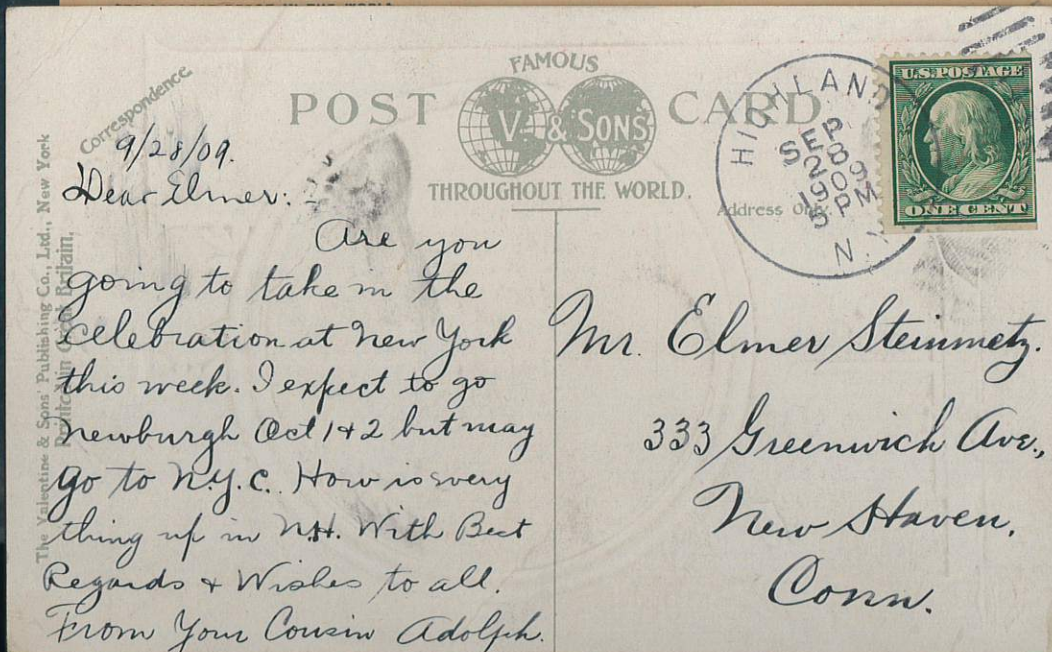 FAMOUS
POST CARD
V. & SONS
THROUGHOUT THE WORLD.
Correspondence
Address
The Valentine & Sons' Publishing Co., Ltd., New York
Britain.
HIGHLAND
SEP
28
1909
5 PM
N.Y.
U.S. POSTAGE
ONE CENT
9/28/09.
Dear Elmer:-
Are you
going to take in the
celebration at New York
this week. I expect to go
Newburgh Oct 1+2 but may
go to N.Y.C. How is every
thing up in N.H. With Best
Regards + Wishes to all.
From Your Cousin Adolph.
Mr. Elmer Steinmetz.
333 Greenwich Ave.,
New Haven,
Conn.